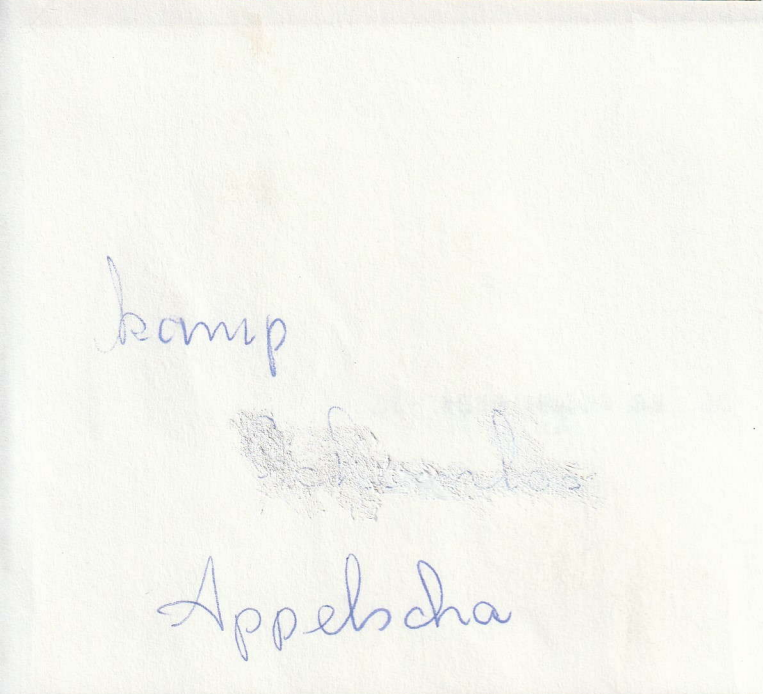 kamp
Appelscha